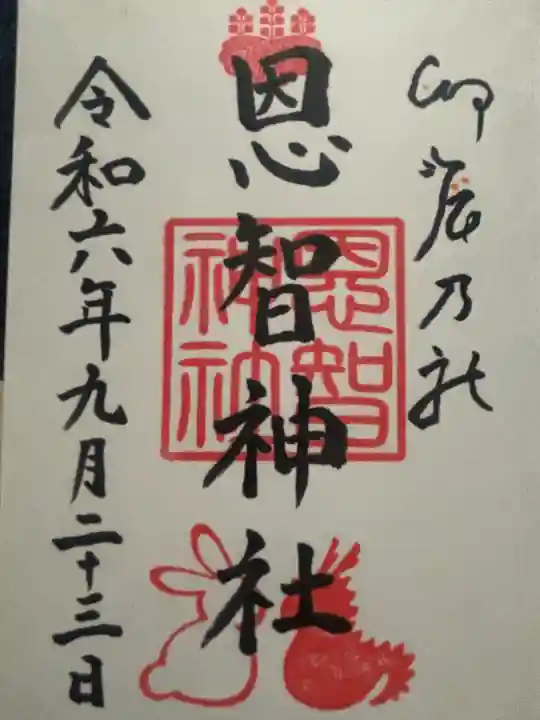 卯辰乃社
恩智神社
恩智
神社
令和六年九月二十三日